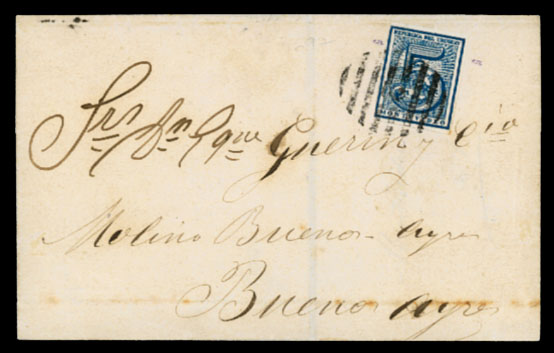 REPUBLICA DEL URUGUAY
5
Srs Dn Eqne Guerin y Cia
Molino Buenos ayres
Buenos ayres